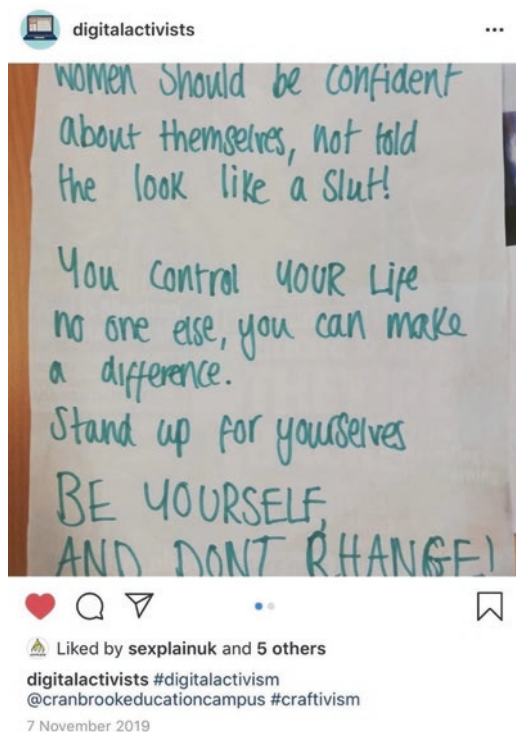 digitalactivists
women should be confident
about themselves, not told
the look like a slut!
You control YOUR Life
no one else, you can make
a difference.
Stand up for yourselves
BE YOURSELF
AND DONT CHANGE!
Liked by sexplainuk and 5 others
digitalactivists #digitalactivism
@cranbrookeducationcampus #craftivism
7 November 2019